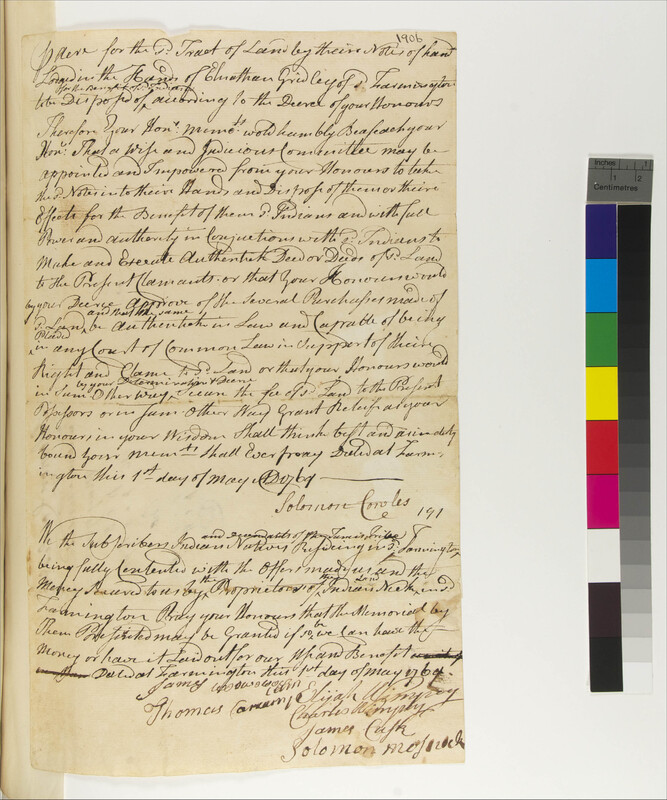 1906
P Acre for the sd. Tract of Land by their Notes of hand
Lodgd in the Hands of Elnathan Gridley of sd. Farmington
for the Benefit of sd. Indians
to be Disposd of according to the Decree of your Honours
Therefore Your Honrs. memots. wold humbly Beseach your
Honrs. That a Wise and Judicious Committee may be
appointed and Impowered from your Honours to take
the sd. Notes into their Hands and Dispose of them or their
Effects for the Benefit of them sd. Indians and with full
Power and authority in Conjuctions with sd. Indians to
Make and Execute Authentick Deed or Deeds of sd. Land
to the Present Claimants or that Your Honours would
by your Decree Approve of the Several Purchasses made of
and that the same
sd. Land be authentick in Law and Capable of being
Pleded
in any Court of Common Law in Support of their
Right and Clame to sd. Land or that your Honours would
by your Determination & Decree
in Sum Other way Secure the fee of sd. Land to the Present
Posessors or in sum Other Way Grant Releif as your
Honours in your Wisdom Shall think best and as in duty
bound Your memts. Shall Ever pray Dated at Farm-
ington this 1st day of may AD 1769
Solomon Cowles 191
and decendants of the Tunxis Tribe
We the Subscribers Indians Natives Residing in sd. Farmington
being fully Contented with the Offers made us and the
the Land
Money Secured to us by the Proprietors of Indian Neck in sd.
Farmington Pray your Honours that the Memorial by
Them Preferred may be Granted if so be we Can have the
Money or have it Laid out for our Use and Benefit
Dated at Farmington this 1st day of may 1769
James
Thomas Elijah Wimpey
Charles Wimpey
James Cusk
Solomon mossuck
Inches
1
2
Centimetres